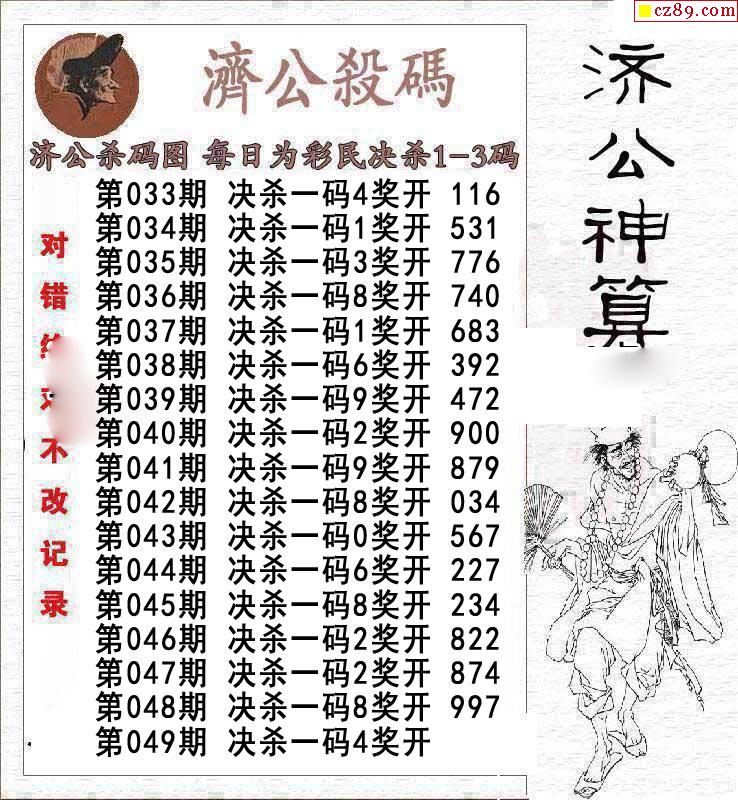 cz89.com
濟公殺碼
济公杀码图 每日为彩民决杀1-3码
第033期 决杀一码4奖开 116
第034期 决杀一码1奖开 531
第035期 决杀一码3奖开 776
第036期 决杀一码8奖开 740
第037期 决杀一码1奖开 683
第038期 决杀一码6奖开 392
第039期 决杀一码9奖开 472
第040期 决杀一码2奖开 900
第041期 决杀一码9奖开 879
第042期 决杀一码8奖开 034
第043期 决杀一码0奖开 567
第044期 决杀一码6奖开 227
第045期 决杀一码8奖开 234
第046期 决杀一码2奖开 822
第047期 决杀一码2奖开 874
第048期 决杀一码8奖开 997
第049期 决杀一码4奖开
对错不改记录
济公神算